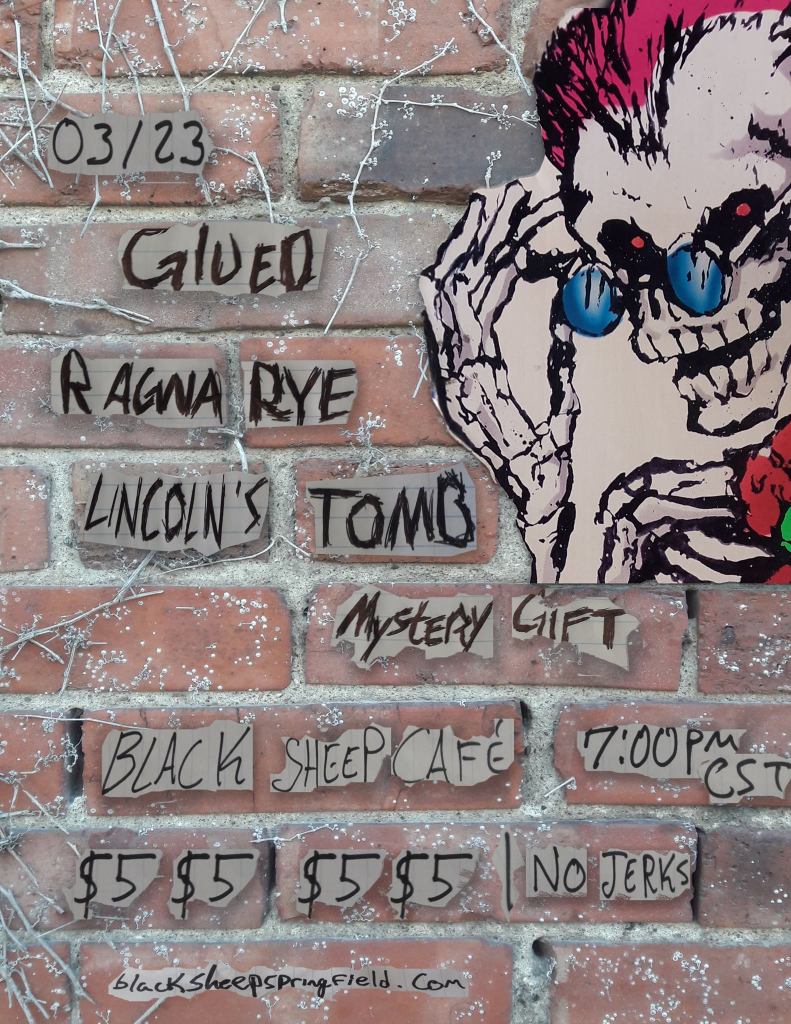 03/23
GlUED
RAGNA RYE
LINCOLN'S TOMB
MyStERy GIFT
BLACK SHEEP CAFÉ 7:00PM CST
$5 $5 $5 $5 | NO JERKS
blacksheepspringfield.com